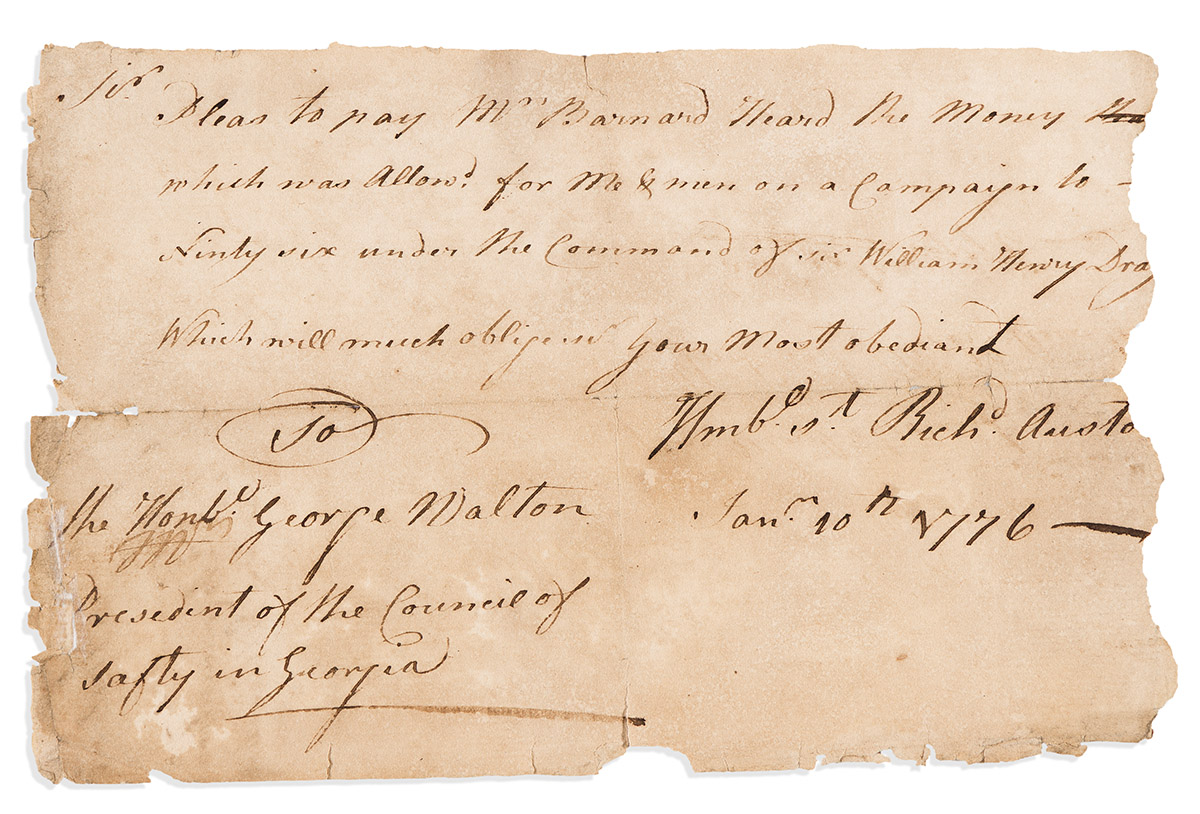 Sir
Pleas to pay Mr Barnard Heard the Money
which was Allowd. for Me & men on a Campaign to –
Ninty six under the Command of sir William Henry Dray
Which will much oblige sir Your Most obediant
Hmbd. st Richd. Austo
To
the Honbd. George Walton
Janr. 10th 1776 —
Presedint of the Council of
safty in Georgia